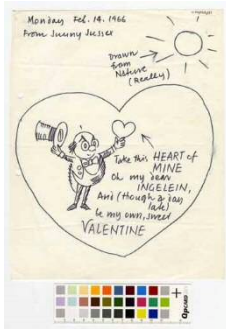 Monday Feb. 14. 1966
From Sunny Sussex
Drawn
from
Nature
(Really)
Take this HEART of
MINE
Oh my dear
INGELEIN,
And (though a day
late)
be my own, sweet
VALENTINE